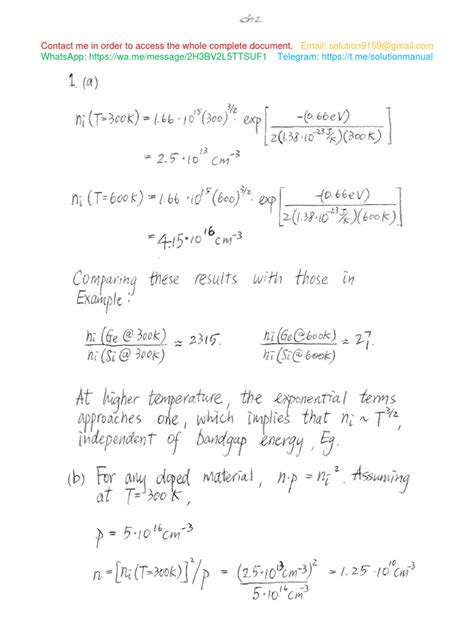 ch2
Contact me in order to access the whole complete document. Email: solution9159@gmail.com
WhatsApp: https://wa.me/message/2H3BV2L5TTSUF1 Telegram: https://t.me/solutionmanual
1. (a)
ni (T=300K) = 1.66 · 10^15 (300)^3/2 · exp [ -(0.66eV) / 2(1.38·10^-23 J/K)(300K) ]
= 2.5 · 10^13 cm^-3
ni (T=600K) = 1.66 · 10^15 (600)^3/2 · exp [ -(0.66eV) / 2(1.38·10^-23 J/K)(600K) ]
= 4.15 · 10^16 cm^-3
Comparing these results with those in
Example :
ni (Ge @ 300K) / ni (Si @ 300K) ≈ 2315. ni (Ge @ 600K) / ni (Si @ 600K) ≈ 27.
At higher temperature, the exponential terms
approaches one, which implies that ni ~ T^3/2,
independent of bandgap energy, Eg.
(b) For any doped material, n·p = ni^2. Assuming
at T = 300K,
p = 5·10^16 cm^-3
n = [ni(T=300K)]^2/p = (2.5·10^13 cm^-3)^2 / 5·10^16 cm^-3 = 1.25 · 10^10 cm^-3